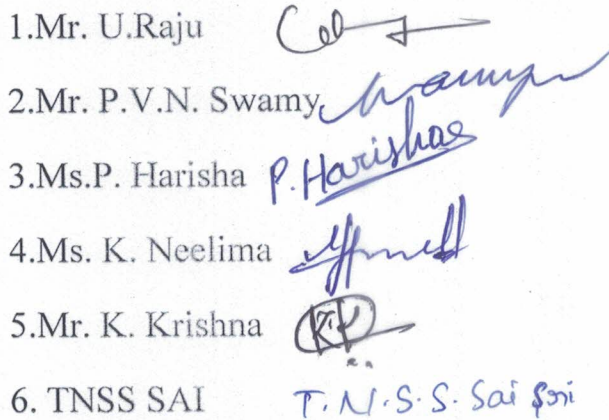 1.Mr. U.Raju
2.Mr. P.V.N. Swamy
3.Ms.P. Harisha P.Harisha
4.Ms. K. Neelima
5.Mr. K. Krishna
6. TNSS SAI T.N.S.S. Sai Sri